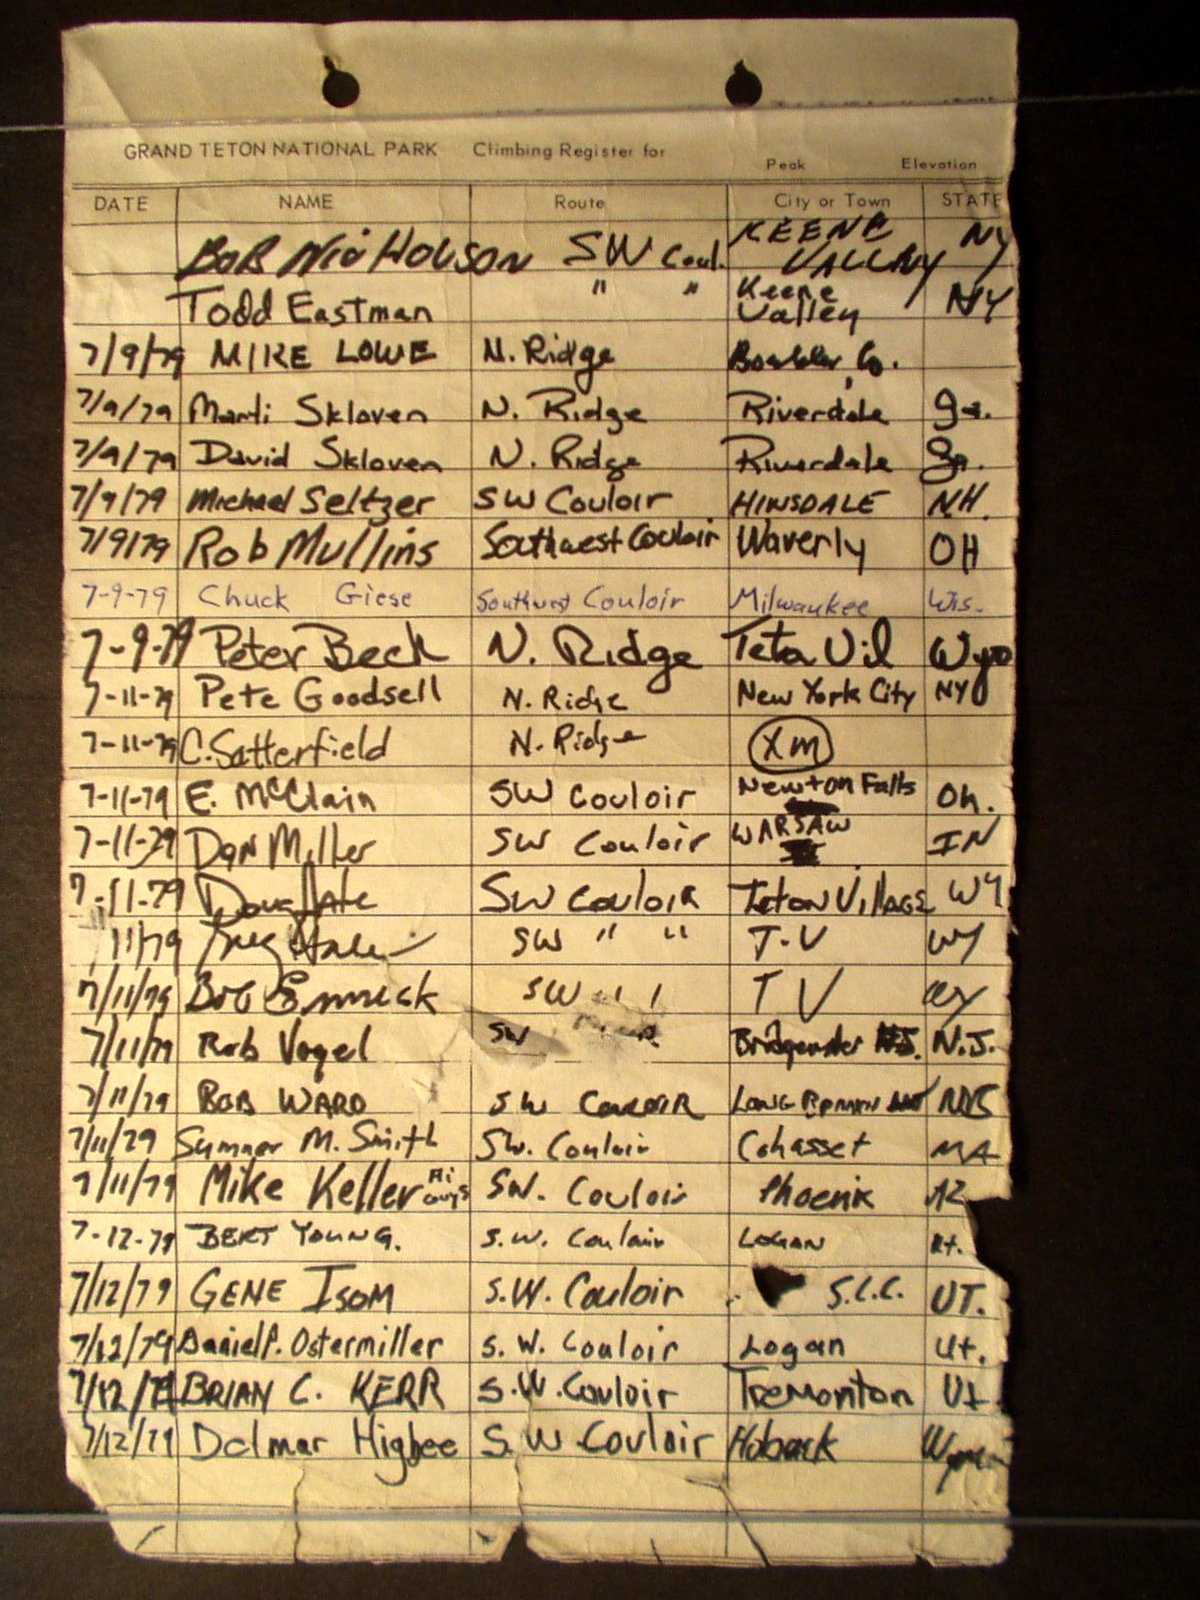 GRAND TETON NATIONAL PARK Climbing Register for Peak Elevation
DATE NAME Route City or Town STATE
BOB NICHOLSON SW Coul. KEENE VALLEY NY
Todd Eastman " " Keene Valley NY
7/9/79 MIKE LOWE N. Ridge Boulder, Co.
7/9/79 Marti Skloven N. Ridge Riverdale Ga.
7/9/79 David Skloven N. Ridge Riverdale Ga.
7/9/79 Michael Seltzer SW Couloir HINSDALE NH.
7/9/79 Rob Mullins Southwest Couloir Waverly OH
7-9-79 Chuck Giese Southwest Couloir Milwaukee Wis.
7-9-79 Peter Beck N. Ridge Teton Vil Wyo
7-11-79 Pete Goodsell N. Ridge New York City NY
7-11-79 C. Satterfield N. Ridge Xm
7-11-79 E. McClain SW Couloir Newton Falls Oh.
7-11-79 Dan Miller SW Couloir WARSAW IN
7-11-79 Doug SW Couloir Teton Village WY
11/79 Greg SW " " T.V WY
7/11/79 Bob SW " " TV WY
7/11/79 Rob Vogel SW Bridgewater N.J. N.J.
7/11/79 BOB WARD SW COULOIR LONG
7/11/79 Sumner M. Smith SW. Couloir Cohasset MA
7/11/79 Mike Keller Hi Guys SW. Couloir Phoenix AZ
7-12-79 BERT YOUNG. S.W. Couloir LOGAN Ut.
7/12/79 GENE ISOM S.W. Couloir S.L.C. UT.
7/12/79 Daniel P. Ostermiller S. W. Couloir Logan Ut.
7/12/79 BRIAN C. KERR S.W. Couloir Tremonton Ut.
7/12/79 Delmar Higbee S. W Couloir Hoback